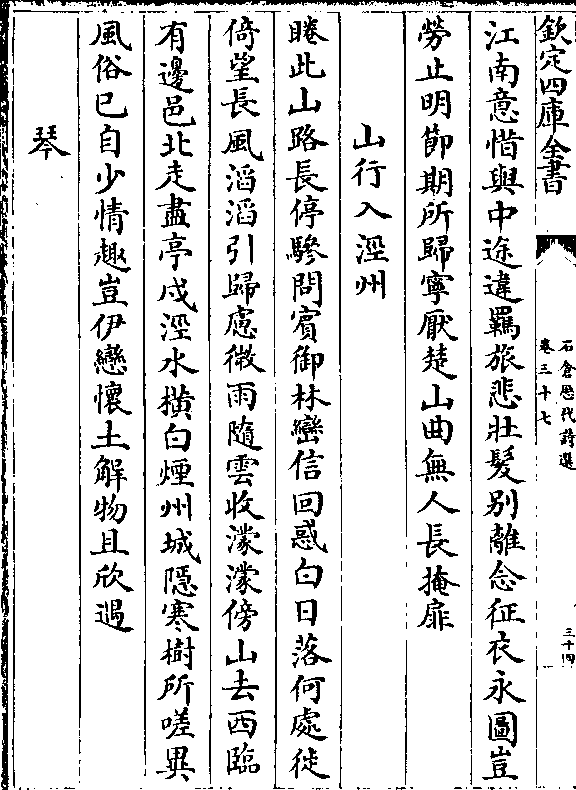 欽定四庫全書
石倉歷代詩選
卷三十七
三十四
江南意惜與中途違羈旅悲壯髮別離念征衣永圖豈
勞止明節期所歸寧厭楚山曲無人長掩扉
山行入涇州
睠此山路長停驂問賓御林巒信回惑白日落何處徙
倚望長風滔滔引歸慮微雨隨雲收濛濛傍山去西臨
有邊邑北走盡亭戍涇水横白煙州城隱寒樹所嗟異
風俗已自少情趣豈伊戀懷土觧物且欣遇
琴